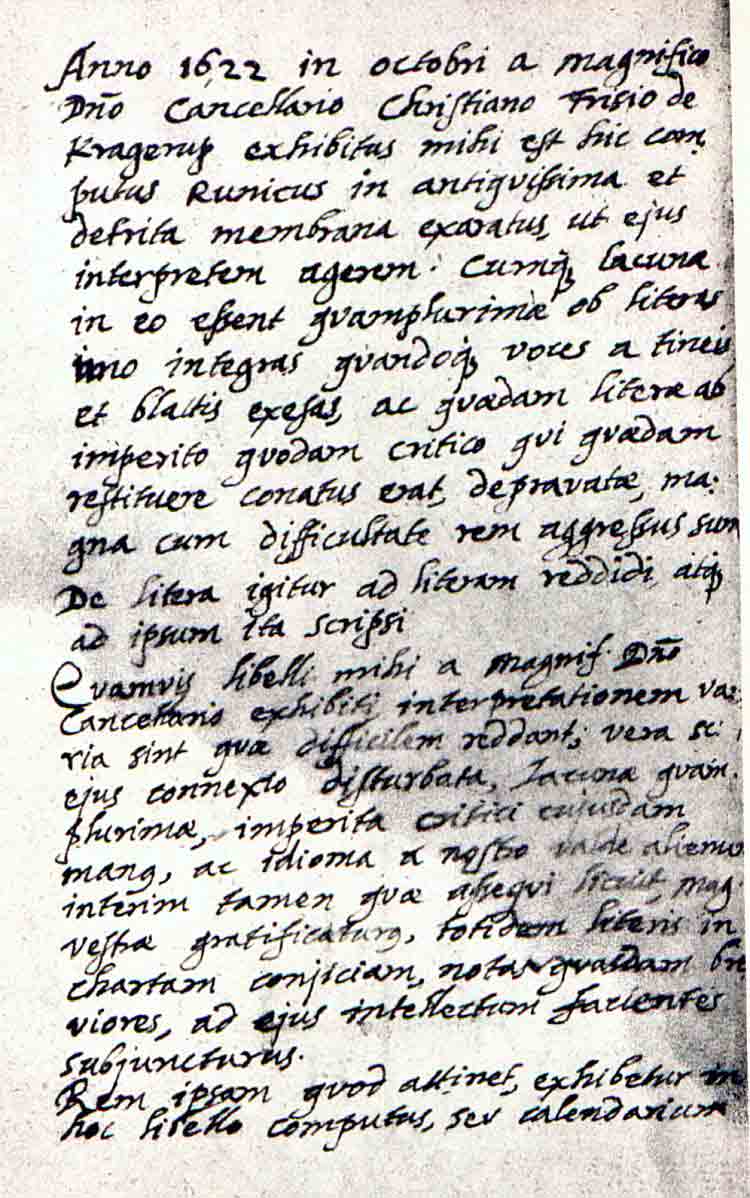 Anno 1622 in octobri a magnifico
Dn̄o Cancellario Christiano Frisio de
Kragerup exhibitus mihi est hic com
putus Runicus in antiquissima et
detrita membrana exaratus, ut ejus
interpretem agerem. Cumq; lacunæ
in eo essent qvamplurimæ ob literas
imo integras qvandoq; voces a tineis
et blattis exesas, ac qvædam literæ ab
imperito qvodam critico qvi qvædam
restituere conatus erat, depravatæ, ma:
gna cum difficultate rem aggressus sum
De litera igitur ad literam reddidi, atq;
ad ipsum ita scripsi
Qvamvis libelli mihi a magnif. Dn̄o
Cancellario exhibiti interpretationem va:
ria sint qvæ difficilem reddant; vera sc:
ejus connexio disturbata, lacunæ qvam
plurimæ, imperita critici cujusdam
manq, ac idioma a nostro valde alienum
interim tamen qvæ asseqvi licuit, mag.
vestræ gratificaturq, totidem literis in
chartam conjiciam, notas qvasdam bre
viores, ad ejus intellectum facientes
subjuncturus.
Rem ipsam qvod attinet, exhibetur in
hoc libello computus, sev calendarium